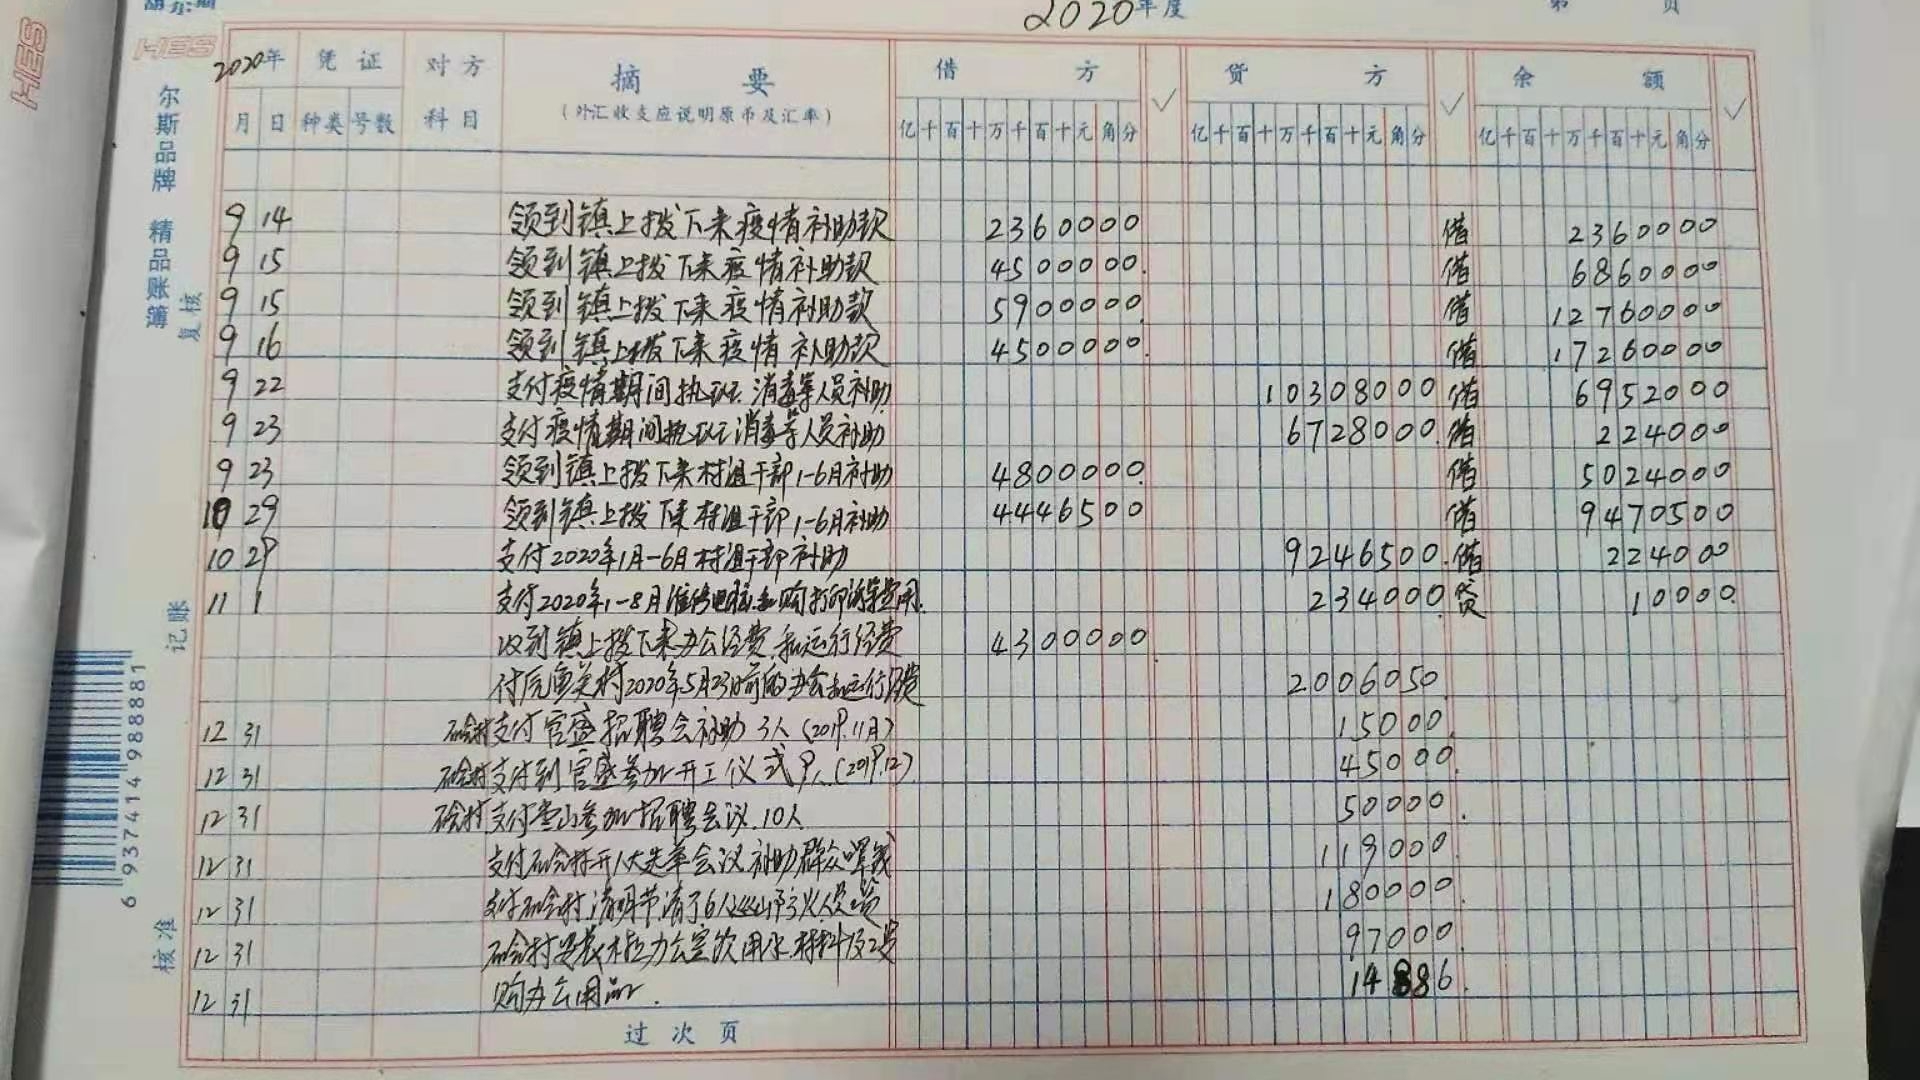 2020年度 第 页
HES
HES
尔斯品牌 精品账簿
复核
记账
核准
6 937414 988881
2020年 凭证 对方科目 摘要 借方 ✓ 贷方 ✓ 余额 ✓
(外汇收支应说明原币及汇率)
月 日 种类 号数 亿千百十万千百十元角分 亿千百十万千百十元角分 亿千百十万千百十元角分
9 14 领到镇上拨下来疫情补助款 2360000 借 2360000
9 15 领到镇上拨下来疫情补助款 4500000 借 6860000
9 15 领到镇上拨下来疫情补助款 5900000 借 12760000
9 16 领到镇上拨下来疫情补助款 4500000 借 17260000
9 22 支付疫情期间执班、消毒等人员补助 10308000 借 6952000
9 23 支付疫情期间执班消毒等人员补助 6728000 借 224000
9 23 领到镇上拨下来村组干部1-6月补助 4800000 借 5024000
10 29 领到镇上拨下来村组干部1-6月补助 4446500 借 9470500
10 29 支付2020年1月-6月村组干部补助 9246500 借 224000
11 1 支付2020年1-8月维修电脑和购打印 费用 234000 贷 10000
收到镇上拨下来办公经费和运行经费 4300000
付 村2020年5月23日前的办公和运行经费 2006050
12 31 支付官盛招聘会补助3人(2019.11月) 15000
12 31 支付到官盛参加开工仪式9人(2019.12) 45000
12 31 支付 山参加招聘会议10人 50000
12 31 支付 村开 会议补助群众误钱 119000
12 31 支付 村清明节请了6人 防火人员 180000
12 31 村安装 办公室饮用水材料及工资 97000
12 31 购办公用品 14886
过次页